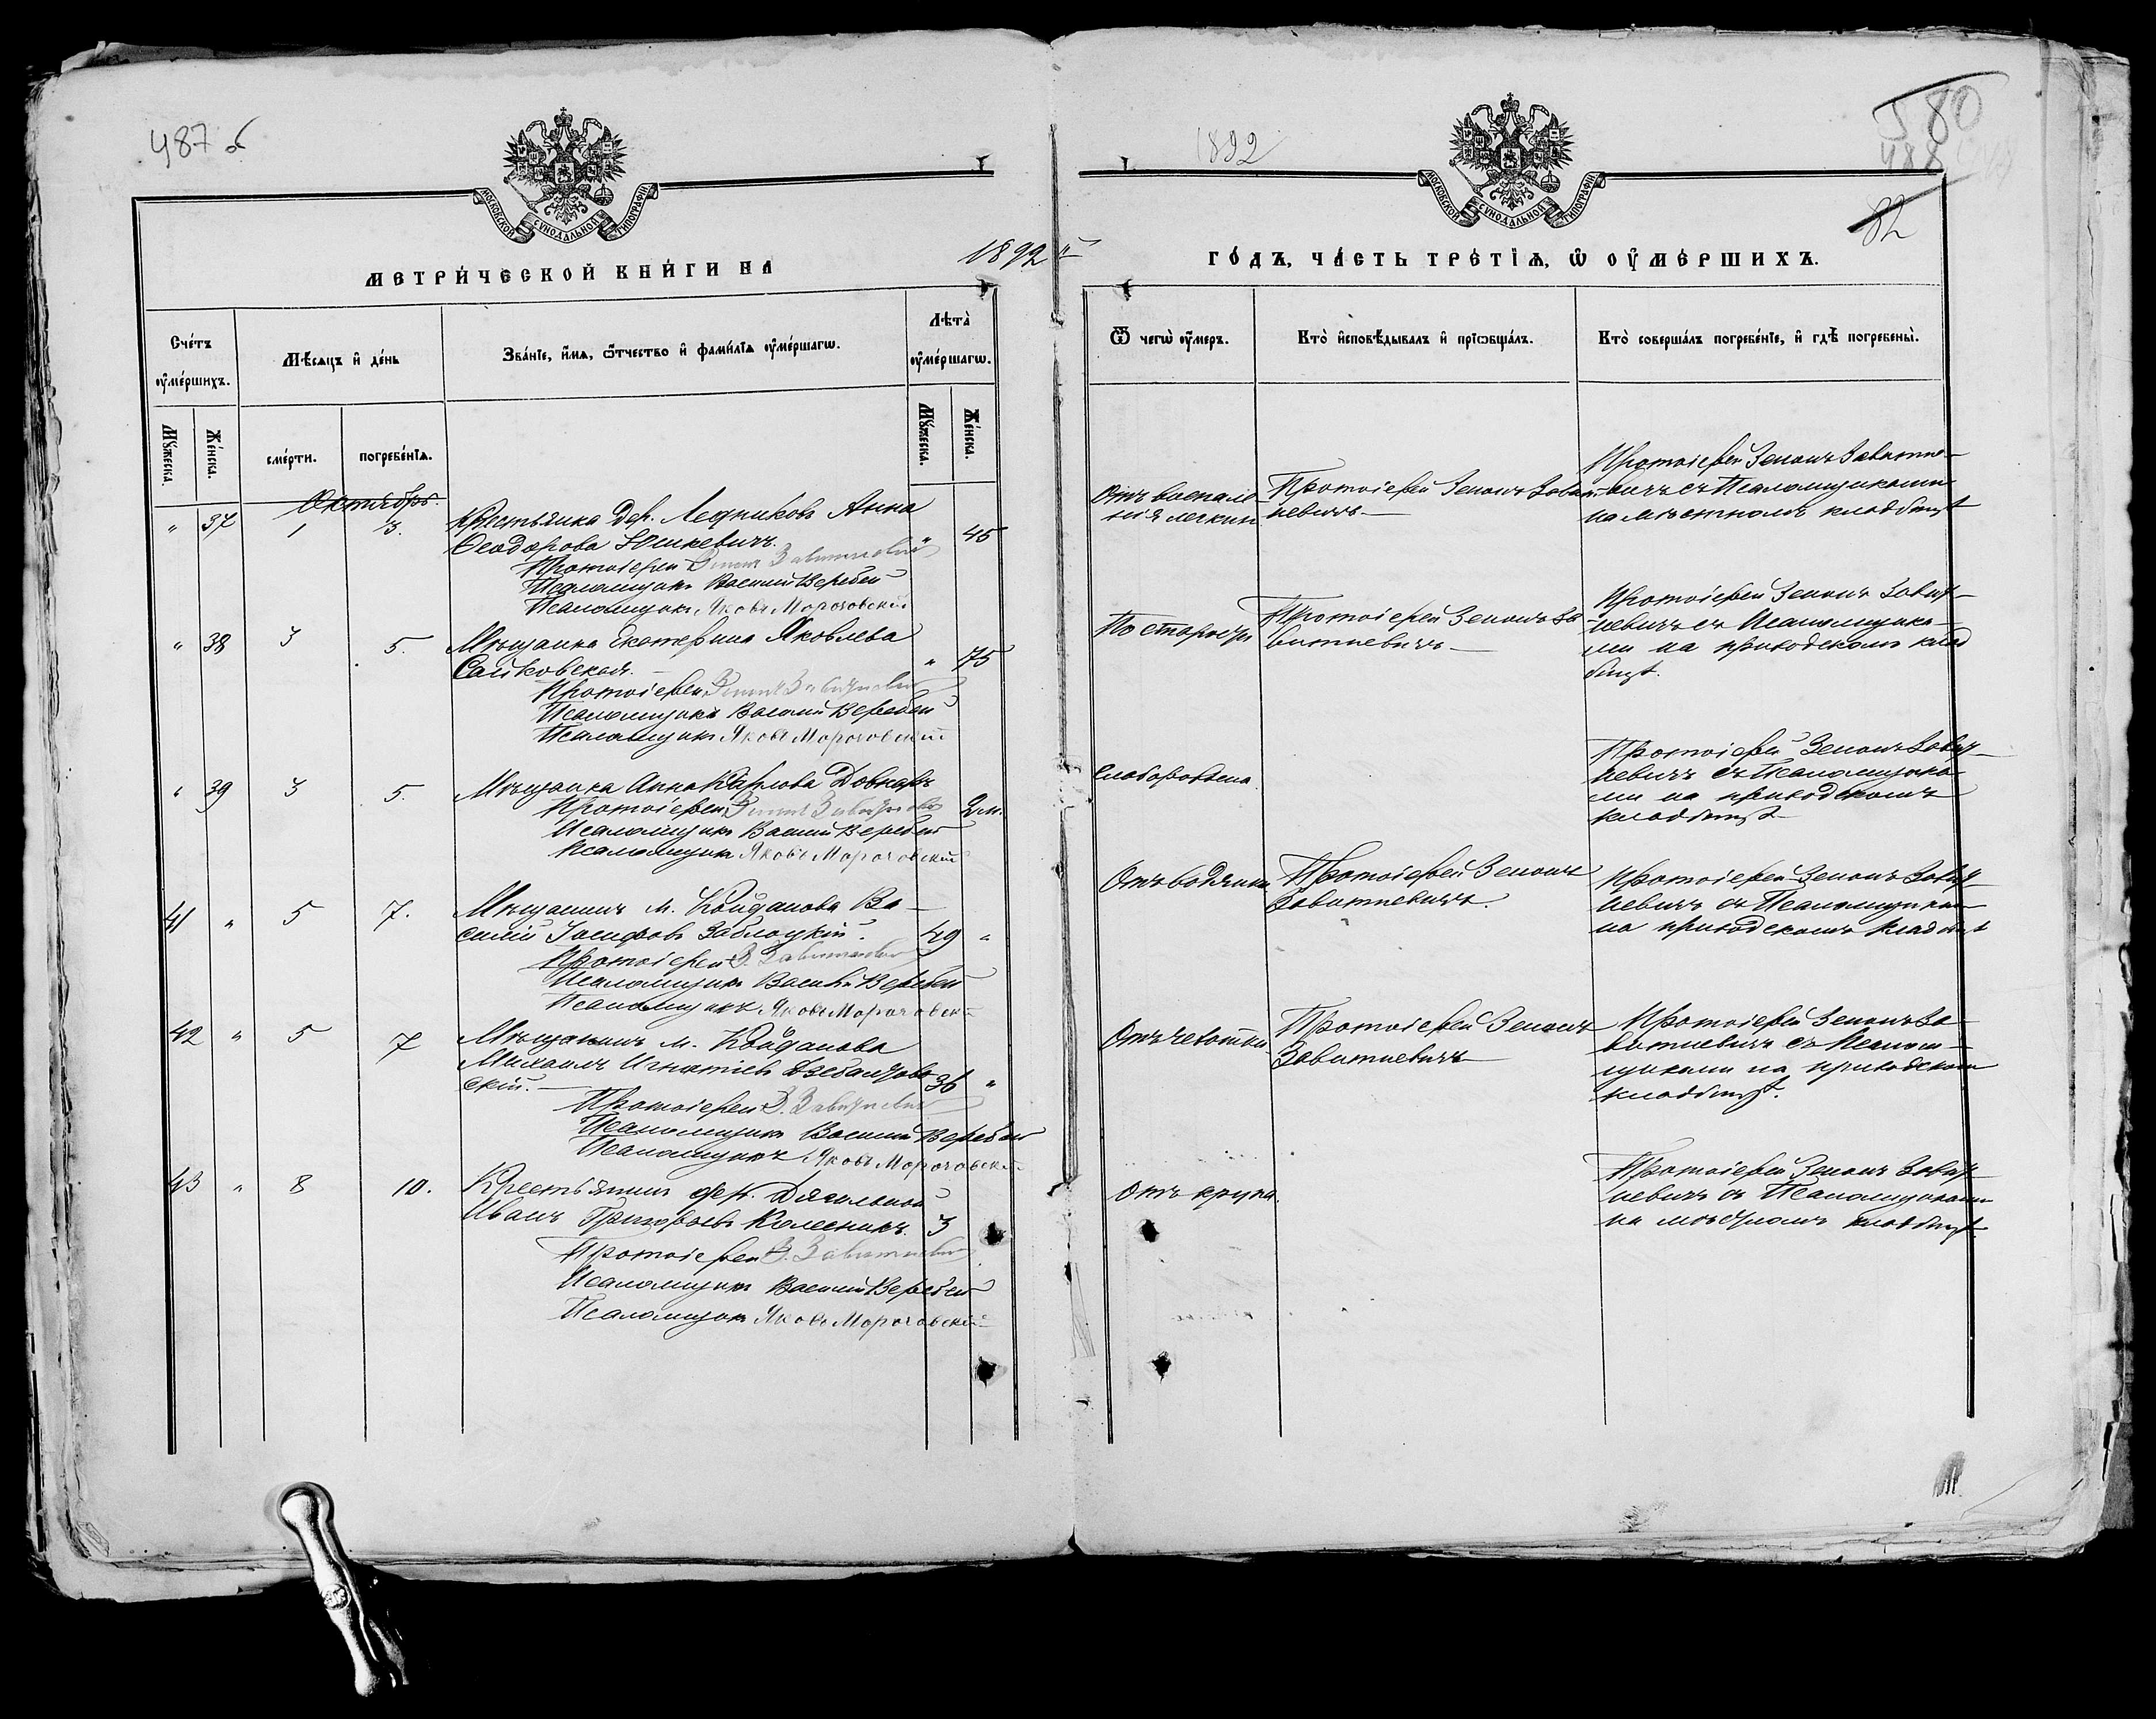 487 об
1892
580
488
82
МОСКОВСКОЙ СѴНОДАЛЬНОЙ ТИПОГРАФІИ
МОСКОВСКОЙ СѴНОДАЛЬНОЙ ТИПОГРАФІИ
МЕТРИ́ЧЕСКОЙ КНИ́ГИ НА 1892 й
ГО́ДЪ, ЧА́СТЬ ТРЕ́ТІѦ, Ѡ ОУ҆МЕ́РШИХЪ.
Сче́тъ оу҆ме́ршихъ.
Мѣ́сяцъ и҆ де́нь
Зва́нїе, и҆́мѧ, ѻ҆́тчество и҆ фами́лїѧ оу҆ме́ршагѡ.
Лѣта̀ оу҆ме́ршагѡ.
Ѿ чегѡ̀ оу҆́меръ.
Кто̀ и҆сповѣ́дывалъ и҆ прїѡбща́лъ.
Кто̀ соверша́лъ погребе́нїе, и҆ гдѣ̀ погребены̀.
Мꙋ́жеска.
Же́нска.
сме́рти.
погребе́нїѧ.
Мꙋ́жеска.
Же́нска.
Октябрь.
" 37 1 3. Крестьянка дер. Ледниковъ Анна
Ѳеодорова Юшкевичъ. " 45
Протоіерей Зенонъ Завитневичъ
Псаломщикъ Василій Веребей
Псаломщикъ Яковъ Морочовскій
Отъ воспале-
нія легкихъ
Протоіерей Зенонъ Завит-
невичъ
Протоіерей Зенонъ Завитне-
вичъ съ Псаломщиками
на мѣстномъ кладбищѣ
" 38 3 5. Мѣщанка Екатерина Яковлева
Сайковская. " 75
Протоіерей Зенонъ Завитневичъ
Псаломщикъ Василій Веребей
Псаломщикъ Яковъ Морочовскій
По старости
Протоіерей Зенонъ За-
витневичъ
Протоіерей Зенонъ Завит-
невичъ съ Псаломщика-
ми на приходскомъ клад
бищѣ.
" 39 3 5. Мѣщанка Анна Карлова Довнаръ
2 м.
Протоіерей Зенонъ Завитневичъ
Псаломщикъ Василій Веребей
Псаломщикъ Яковъ Морочовскій
Слаборождена.
Протоіерей Зенонъ Завит-
невичъ съ Псаломщика-
ми на приходскомъ
кладбищѣ
41 " 5 7. Мѣщанинъ м. Койданова Ва-
силій Іосифовъ Заблоцкій. 49 "
Протоіерей З. Завитневичъ
Псаломщикъ Василій Веребей
Псаломщикъ Яковъ Морочовскій
Отъ водянки.
Протоіерей Зенонъ
Завитневичъ.
Протоіерей Зенонъ Завит-
невичъ съ Псаломщиками
на приходскомъ кладбищѣ
42 " 5 7 Мѣщанинъ м. Койданова
Михаилъ Игнатіевъ
скій. 36 "
Протоіерей З. Завитневичъ
Псаломщикъ Василій Веребей
Псаломщикъ Яковъ Морочовскій
Отъ чахотки
Протоіерей Зенонъ
Завитневичъ
Протоіерей Зенонъ За-
витневичъ съ Псалом-
щиками на приходскомъ
кладбищѣ.
43 " 8 10. Крестьянинъ дер. Дягильной
Иванъ Григорьевъ Колесникъ. 3
Протоіерей З. Завитневичъ
Псаломщикъ Василій Веребей
Псаломщикъ Яковъ Морочовскій
Отъ крупа.
Протоіерей Зенонъ Завит-
невичъ съ Псаломщиками
на мѣстномъ кладбищѣ.